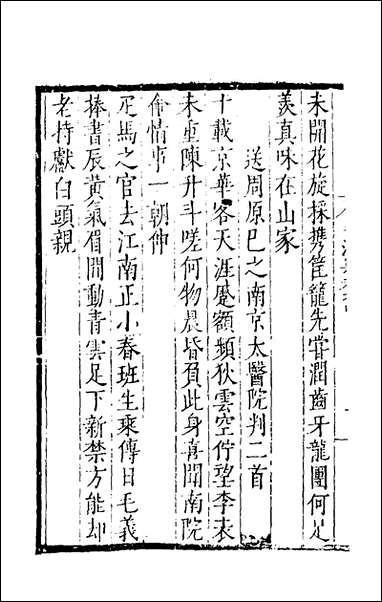 未開花旋採携筐籠先甞潤齒牙龍團何足
羡真味在山家
送周原巳之南京太醫院判二首
十載京華客天涯蹙額頻狄雲空佇望李表
未重陳升斗嗟何物晨昏負此身喜聞南院
命情事一朝伸
疋馬之官去江南正小春班生乘傳日毛義
捧書辰黃氣眉間動青雲足下新禁方能却
老持獻白頭親